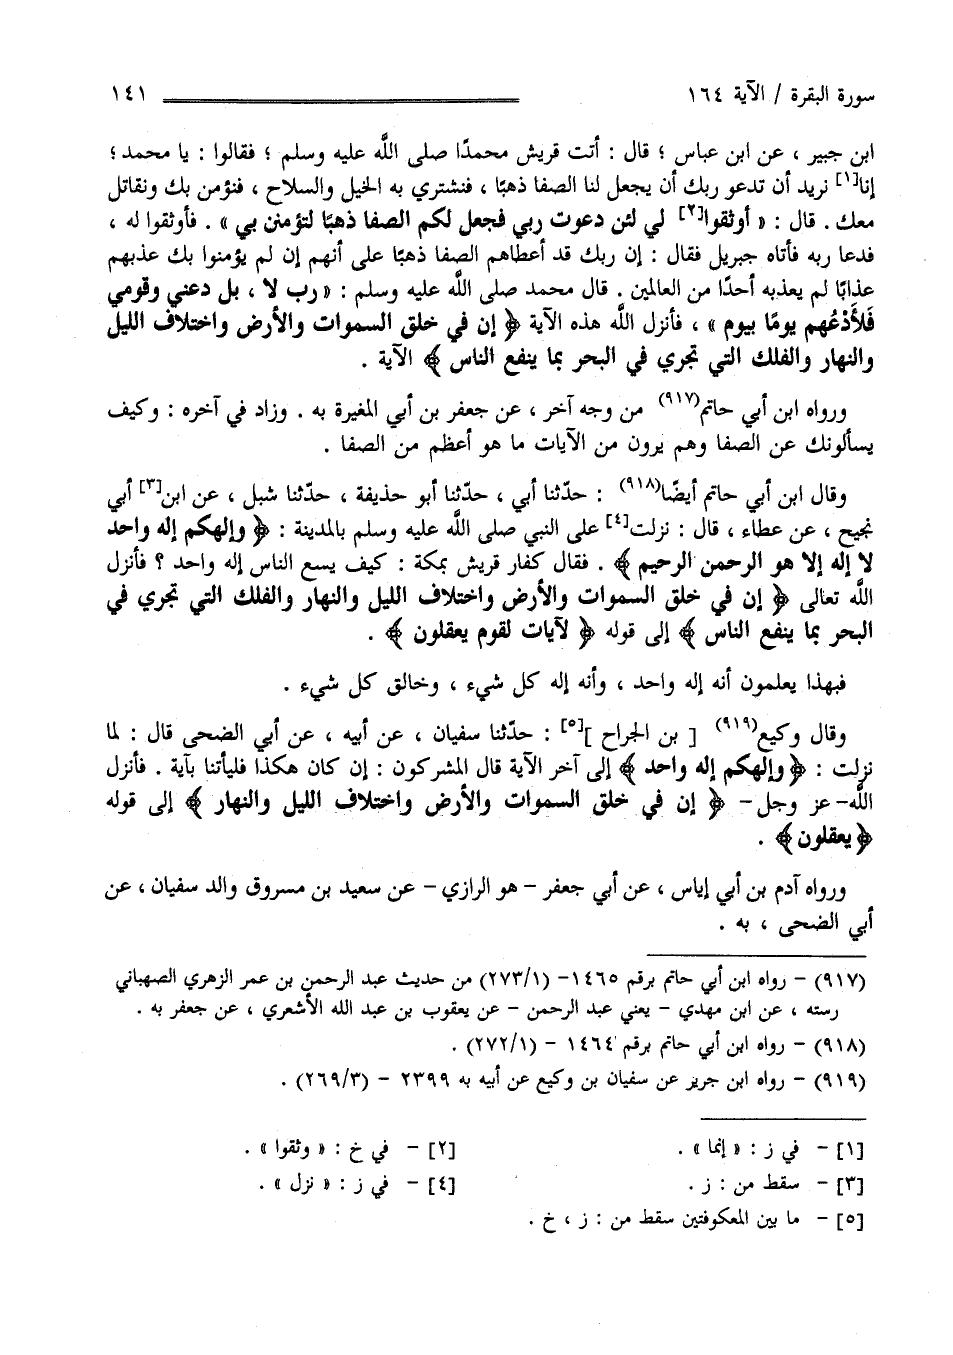 سورة البقرة / الآية ١٦٤ ١٤١
ابن جبير ، عن ابن عباس ؛ قال : أتت قريش محمدًا صلى اللَّه عليه وسلم ؛ فقالوا : يا محمد ؛
إنا[١] نريد أن تدعو ربك أن يجعل لنا الصفا ذهبًا ، فنشتري به الخيل والسلاح ، فنؤمن بك ونقاتل
معك . قال : « أوثقوا[٢] لي لئن دعوت ربي فجعل لكم الصفا ذهبًا لتؤمنن بي » . فأوثقوا له ،
فدعا ربه فأتاه جبريل فقال : إن ربك قد أعطاهم الصفا ذهبًا على أنهم إن لم يؤمنوا بك عذبهم
عذابًا لم يعذبه أحدًا من العالمين . قال محمد صلى اللَّه عليه وسلم : « رب لا ، بل دعني وقومي
فَلأَدْعُهم يومًا بيوم » ، فأنزل اللَّه هذه الآية ﴿ إن في خلق السموات والأرض واختلاف الليل
والنهار والفلك التي تجري في البحر بما ينفع الناس ﴾ الآية .
ورواه ابن أبي حاتم(٩١٧) من وجه آخر ، عن جعفر بن أبي المغيرة به . وزاد في آخره : وكيف
يسألونك عن الصفا وهم يرون من الآيات ما هو أعظم من الصفا .
وقال ابن أبي حاتم أيضًا(٩١٨) : حدّثنا أبي ، حدّثنا أبو حذيفة ، حدّثنا شبل ، عن ابن[٣] أبي
نجيح ، عن عطاء ، قال : نزلت[٤] على النبي صلى اللَّه عليه وسلم بالمدينة : ﴿ وإلهكم إله واحد
لا إله إلا هو الرحمن الرحيم ﴾ . فقال كفار قريش بمكة : كيف يسع الناس إله واحد ؟ فأنزل
اللَّه تعالى ﴿ إن في خلق السموات والأرض واختلاف الليل والنهار والفلك التي تجري في
البحر بما ينفع الناس ﴾ إلى قوله ﴿ لآيات لقوم يعقلون ﴾ .
فبهذا يعلمون أنه إله واحد ، وأنه إله كل شيء ، وخالق كل شيء .
وقال وكيع(٩١٩) [ بن الجراح ][٥] : حدّثنا سفيان ، عن أبيه ، عن أبي الضحى قال : لما
نزلت : ﴿ وإلهكم إله واحد ﴾ إلى آخر الآية قال المشركون : إن كان هكذا فليأتنا بآية . فأنزل
اللَّه- عز وجل- ﴿ إن في خلق السموات والأرض واختلاف الليل والنهار ﴾ إلى قوله
﴿ يعقلون ﴾ .
ورواه آدم بن أبي إياس ، عن أبي جعفر - هو الرازي - عن سعيد بن مسروق والد سفيان ، عن
أبي الضحى ، به .
(٩١٧) - رواه ابن أبي حاتم برقم ١٤٦٥- (٢٧٣/١) من حديث عبد الرحمن بن عمر الزهري الصهباني
رسته ، عن ابن مهدي - يعني عبد الرحمن - عن يعقوب بن عبد الله الأشعري ، عن جعفر به .
(٩١٨) - رواه ابن أبي حاتم برقم ١٤٦٤ - (٢٧٢/١) .
(٩١٩) - رواه ابن جرير عن سفيان بن وكيع عن أبيه به ٢٣٩٩ - (٢٦٩/٣) .
[١] - في ز : « إنما » . [٢] - في خ : « وثقوا » .
[٣] - سقط من : ز . [٤] - في ز : « نزل » .
[٥] - ما بين المعكوفتين سقط من : ز ، خ .